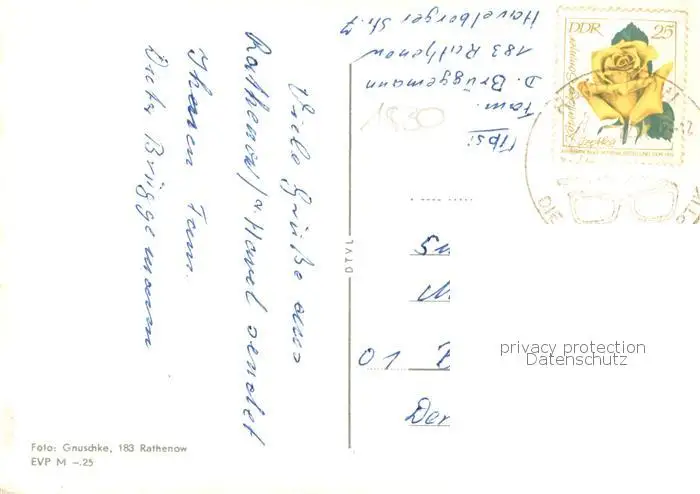 Viele Grüße aus
Rathenow/a. Havel sendet
Ihnen Fam.
Dieter Brüggemann
Abs:
Fam.
D. Brüggemann
183 Rathenow
Havelberger Str. 7
1830
DDR 25
DTVL
01
privacy protection
Datenschutz
Foto: Gnuschke, 183 Rathenow
EVP M –.25